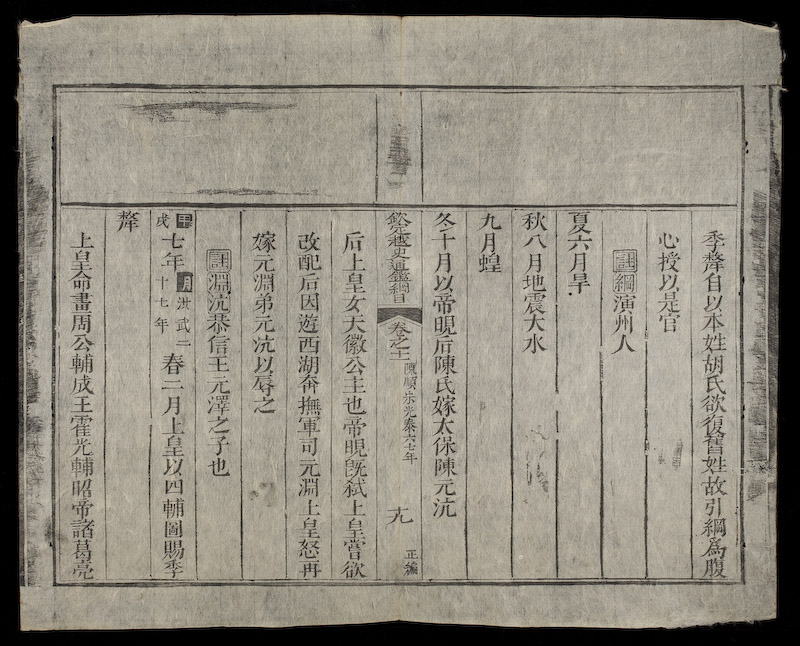 季犛自以本姓胡氏欲復舊姓故引綱為腹
心授以是官
註綱演州人
夏六月旱
秋八月地震大水
九月蝗
冬十月以帝晛后陳氏嫁太保陳元沆
欽定越史通鑑綱目 卷之十一 陳順宗光泰六七年 十九 正編
后上皇女天徽公主也帝晛旣弑上皇嘗欲
改配后因遊西湖奔撫軍司元淵上皇怒再
嫁元淵弟元沆以辱之
註淵沆恭信王元澤之子也
甲戌七年明洪武二十七年春二月上皇以四輔圖賜季
犛
上皇命畫周公輔成王霍光輔昭帝諸葛亮